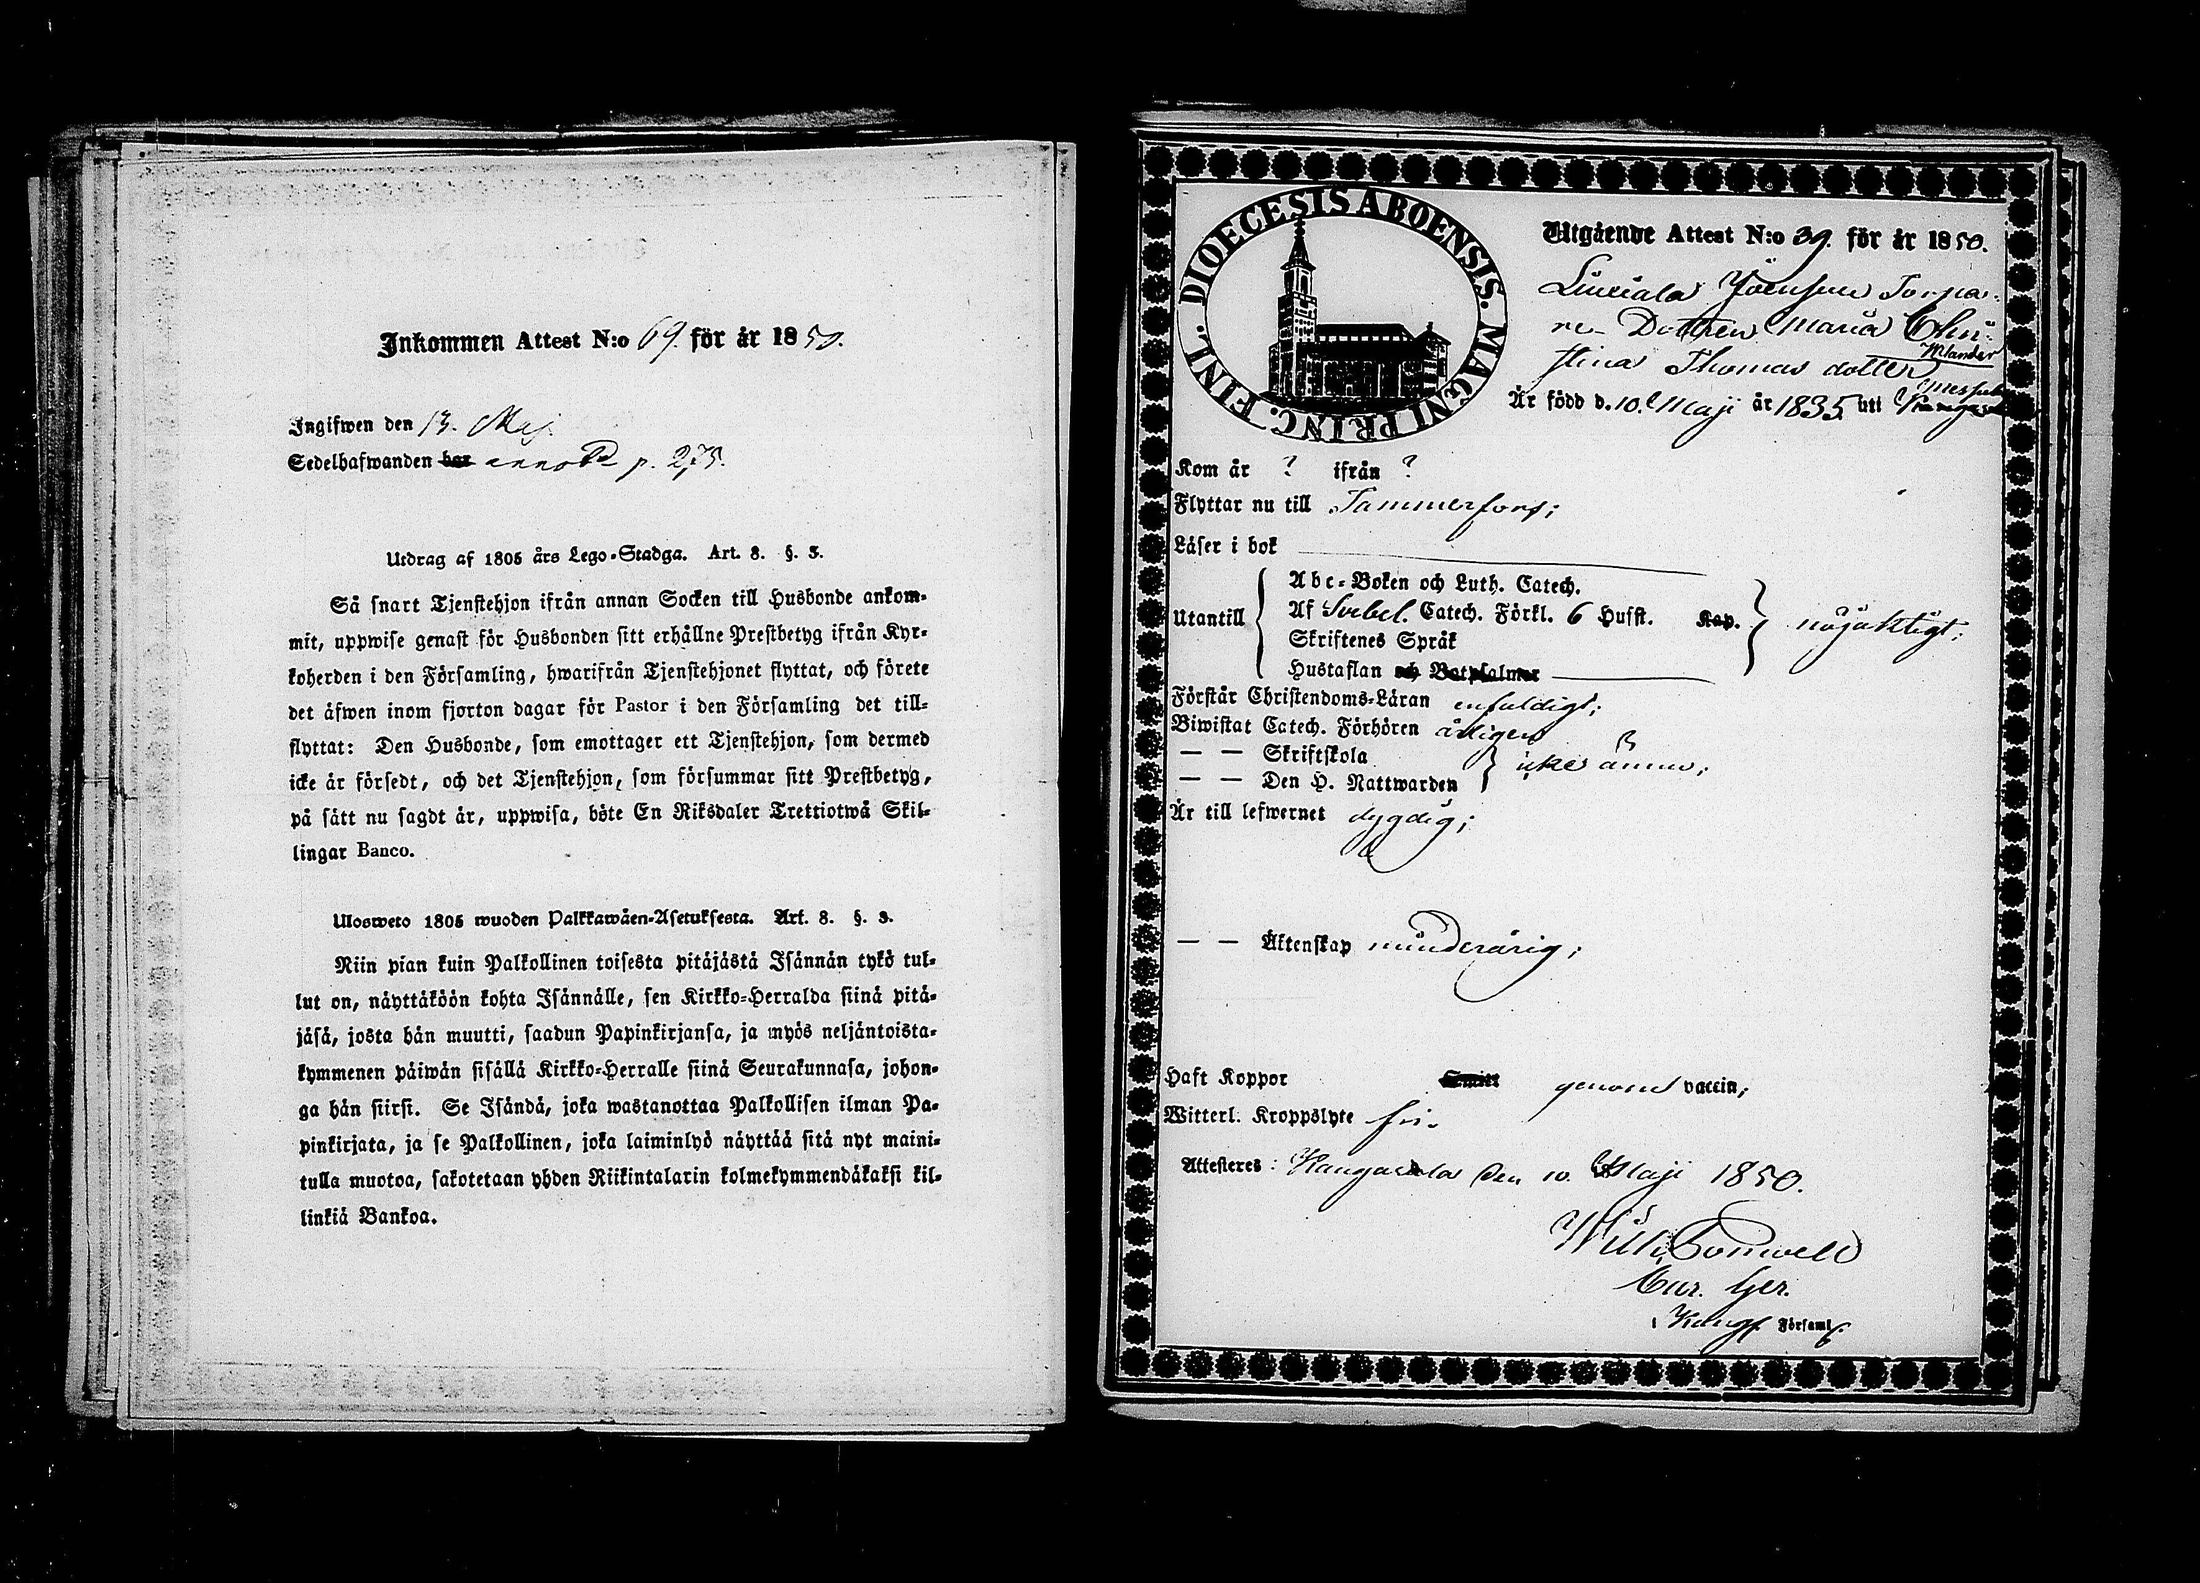 Inkommen Attest N:o 69. för år 1850.
Ingifwen den 13. Maj.
Sedelhafwanden har annotd p. 275.
Utdrag af 1805 års Lego-Stadga. Art. 8. §. 3.
Så snart Tjenstehjon ifrån annan Socken till Husbonde ankom-
mit, uppwise genast för Husbonden sitt erhållne Prestbetyg ifrån Kyr-
koherden i den Församling, hwarifrån Tjenstehjonet flyttat, och förete
det äfwen inom fjorton dagar för Pastor i den Församling det till-
flyttat: Den Husbonde, som emottager ett Tjenstehjon, som dermed
icke är försedt, och det Tjenstehjon, som försummar sitt Prestbetyg,
på sätt nu sagdt är, uppwisa, böte En Riksdaler Trettiotwå Skil-
lingar Banco.
Ulosweto 1805 wuoden Palkkawäen-Asetuksesta. Art. 8. §. 3.
Niin pian kuin Palkollinen toisesta pitäjästä Isännän tykö tul-
lut on, näyttäköön kohta Isännälle, sen Kirkko-Herralda siinä pitä-
jäsä, josta hän muutti, saadun Papinkirjansa, ja myös neljäntoista-
kymmenen päiwän sisällä Kirkko-Herralle siinä Seurakunnasa, johon-
ga hän siirsi. Se Isändä, joka wastanottaa Palkollisen ilman Pa-
pinkirjata, ja se Palkollinen, joka laiminlyö näyttää sitä nyt maini-
tulla muotoa, sakotetaan yhden Riikintalarin kolmekymmendäkaksi kil-
linkiä Bankoa.
DIOECESIS ABOENSIS. MAGNI PRINC. FINL.
Utgående Attest N:o 39. för år 1850.
Torpa-
re Dottren Maria Chri-
Mlander
stina Thomas dotter
Är född d. 10. Maji år 1835 uti
Kom år ? ifrån ?
Flyttar nu till Tammerfors;
Läser i bok
Utantill
Abc-Boken och Luth. Catech.
Af Svebel. Catech. Förkl. 6 Hufst. Kap.
Skriftenes Språk
Hustaflan och Botpsalmer
nöjaktigt;
Förstår Christendoms-Läran enfaldigt;
Biwistat Catech. Förhören årligen
— — Skriftskola
— — Den H. Nattwarden
icke ännu;
Är till lefwernet dygdig;
— — Äktenskap minderårig;
Haft Koppor Smitt genom vaccin;
Witterl. Kroppslyte fri.
Attesteres: Kangasala den 10. Maji 1850.
Wilh.
Cur. Ger.
i Kang. Församl.